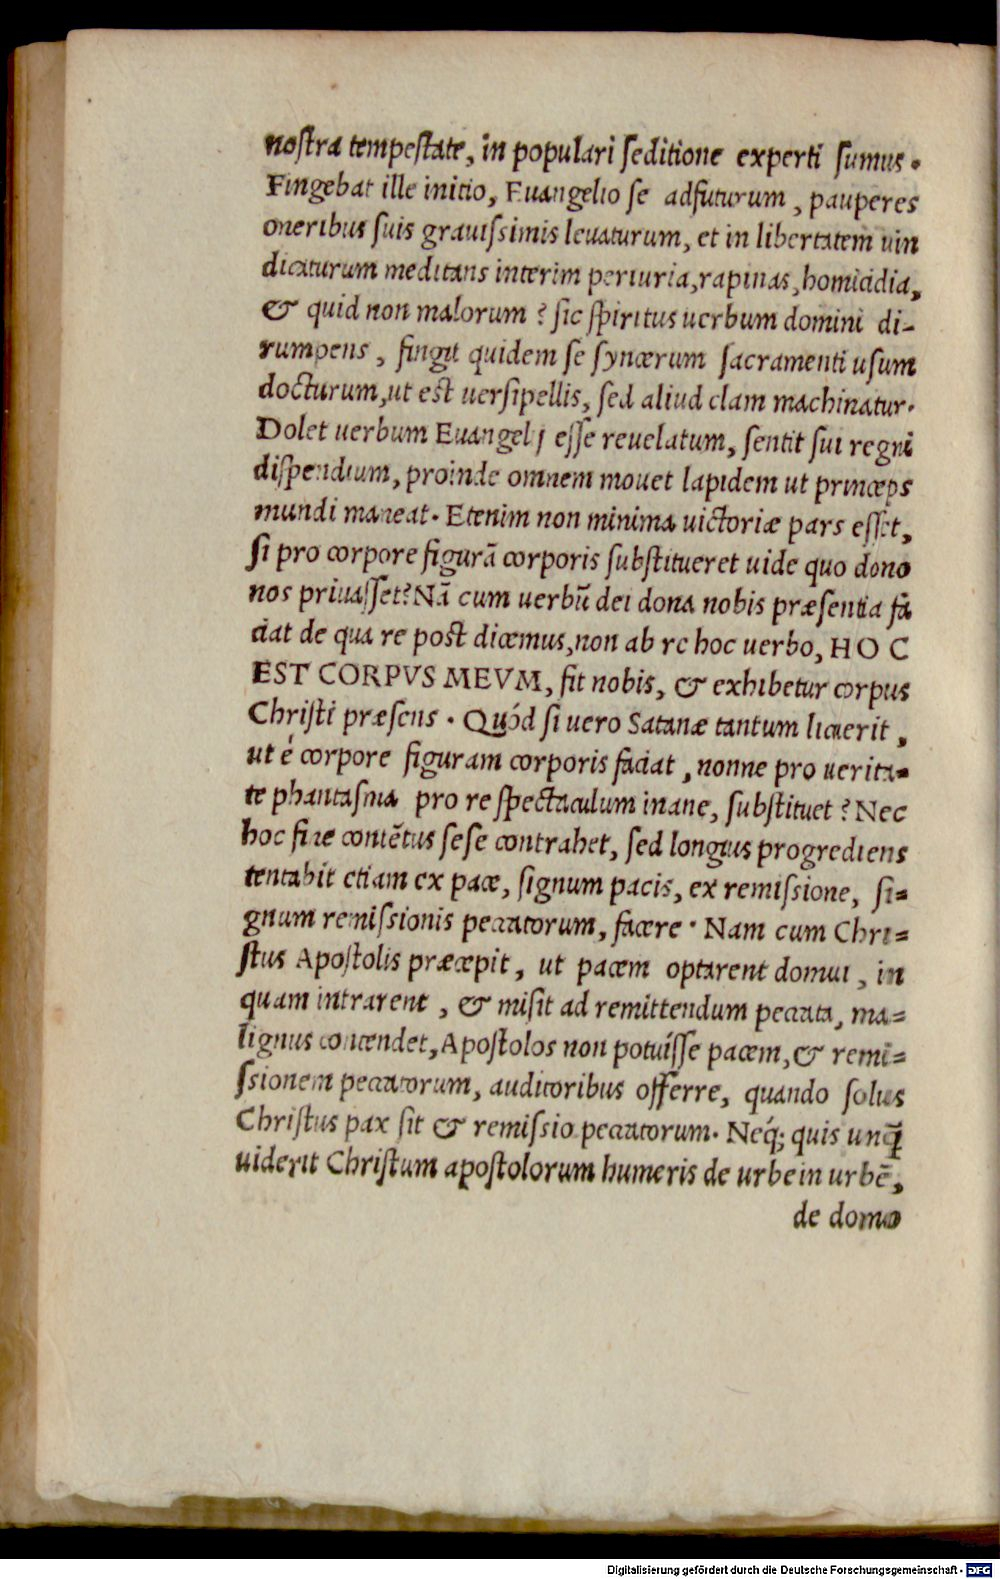 nostra tempestate, in populari seditione experti sumus.
Fingebat ille initio, Euangelio se adfuturum, pauperes
oneribus suis grauissimis leuaturum, et in libertatem uin
dicaturum meditans interim periuria, rapinas, homicidia,
& quid non malorum? sic spiritus uerbum domini di-
rumpens, fingit quidem se syncerum sacramenti usum
docturum, ut est uersipellis, sed aliud clam machinatur.
Dolet uerbum Euangelij esse reuelatum, sentit sui regni
dispendium, proinde omnem mouet lapidem ut princeps
mundi maneat. Etenim non minima uictoriæ pars esset,
si pro corpore figurā corporis substitueret uide quo dono
nos priuasset? Nā cum uerbū dei dona nobis præsentia fa
ciat de qua re post dicemus, non ab re hoc uerbo, HOC
EST CORPVS MEVM, fit nobis, & exhibetur corpus
Christi præsens. Quód si uero Satanæ tantum licuerit,
ut é corpore figuram corporis faciat, nonne pro uerita=
te phantasma pro re spectaculum inane, substituet? Nec
hoc fine contētus sese contrahet, sed longius progrediens
tentabit etiam ex pace, signum pacis, ex remissione, si=
gnum remissionis peccatorum, facere. Nam cum Chri=
stus Apostolis præcepit, ut pacem optarent domui, in
quam intrarent, & misit ad remittendum peccata, ma=
lignus contendet, Apostolos non potuisse pacem, & remi=
ssionem peccatorum, auditoribus offerre, quando solus
Christus pax sit & remissio peccatorum. Neq́; quis unq̄
uiderit Christum apostolorum humeris de urbe in urbē,
de domo
Digitalisierung gefördert durch die Deutsche Forschungsgemeinschaft - DFG